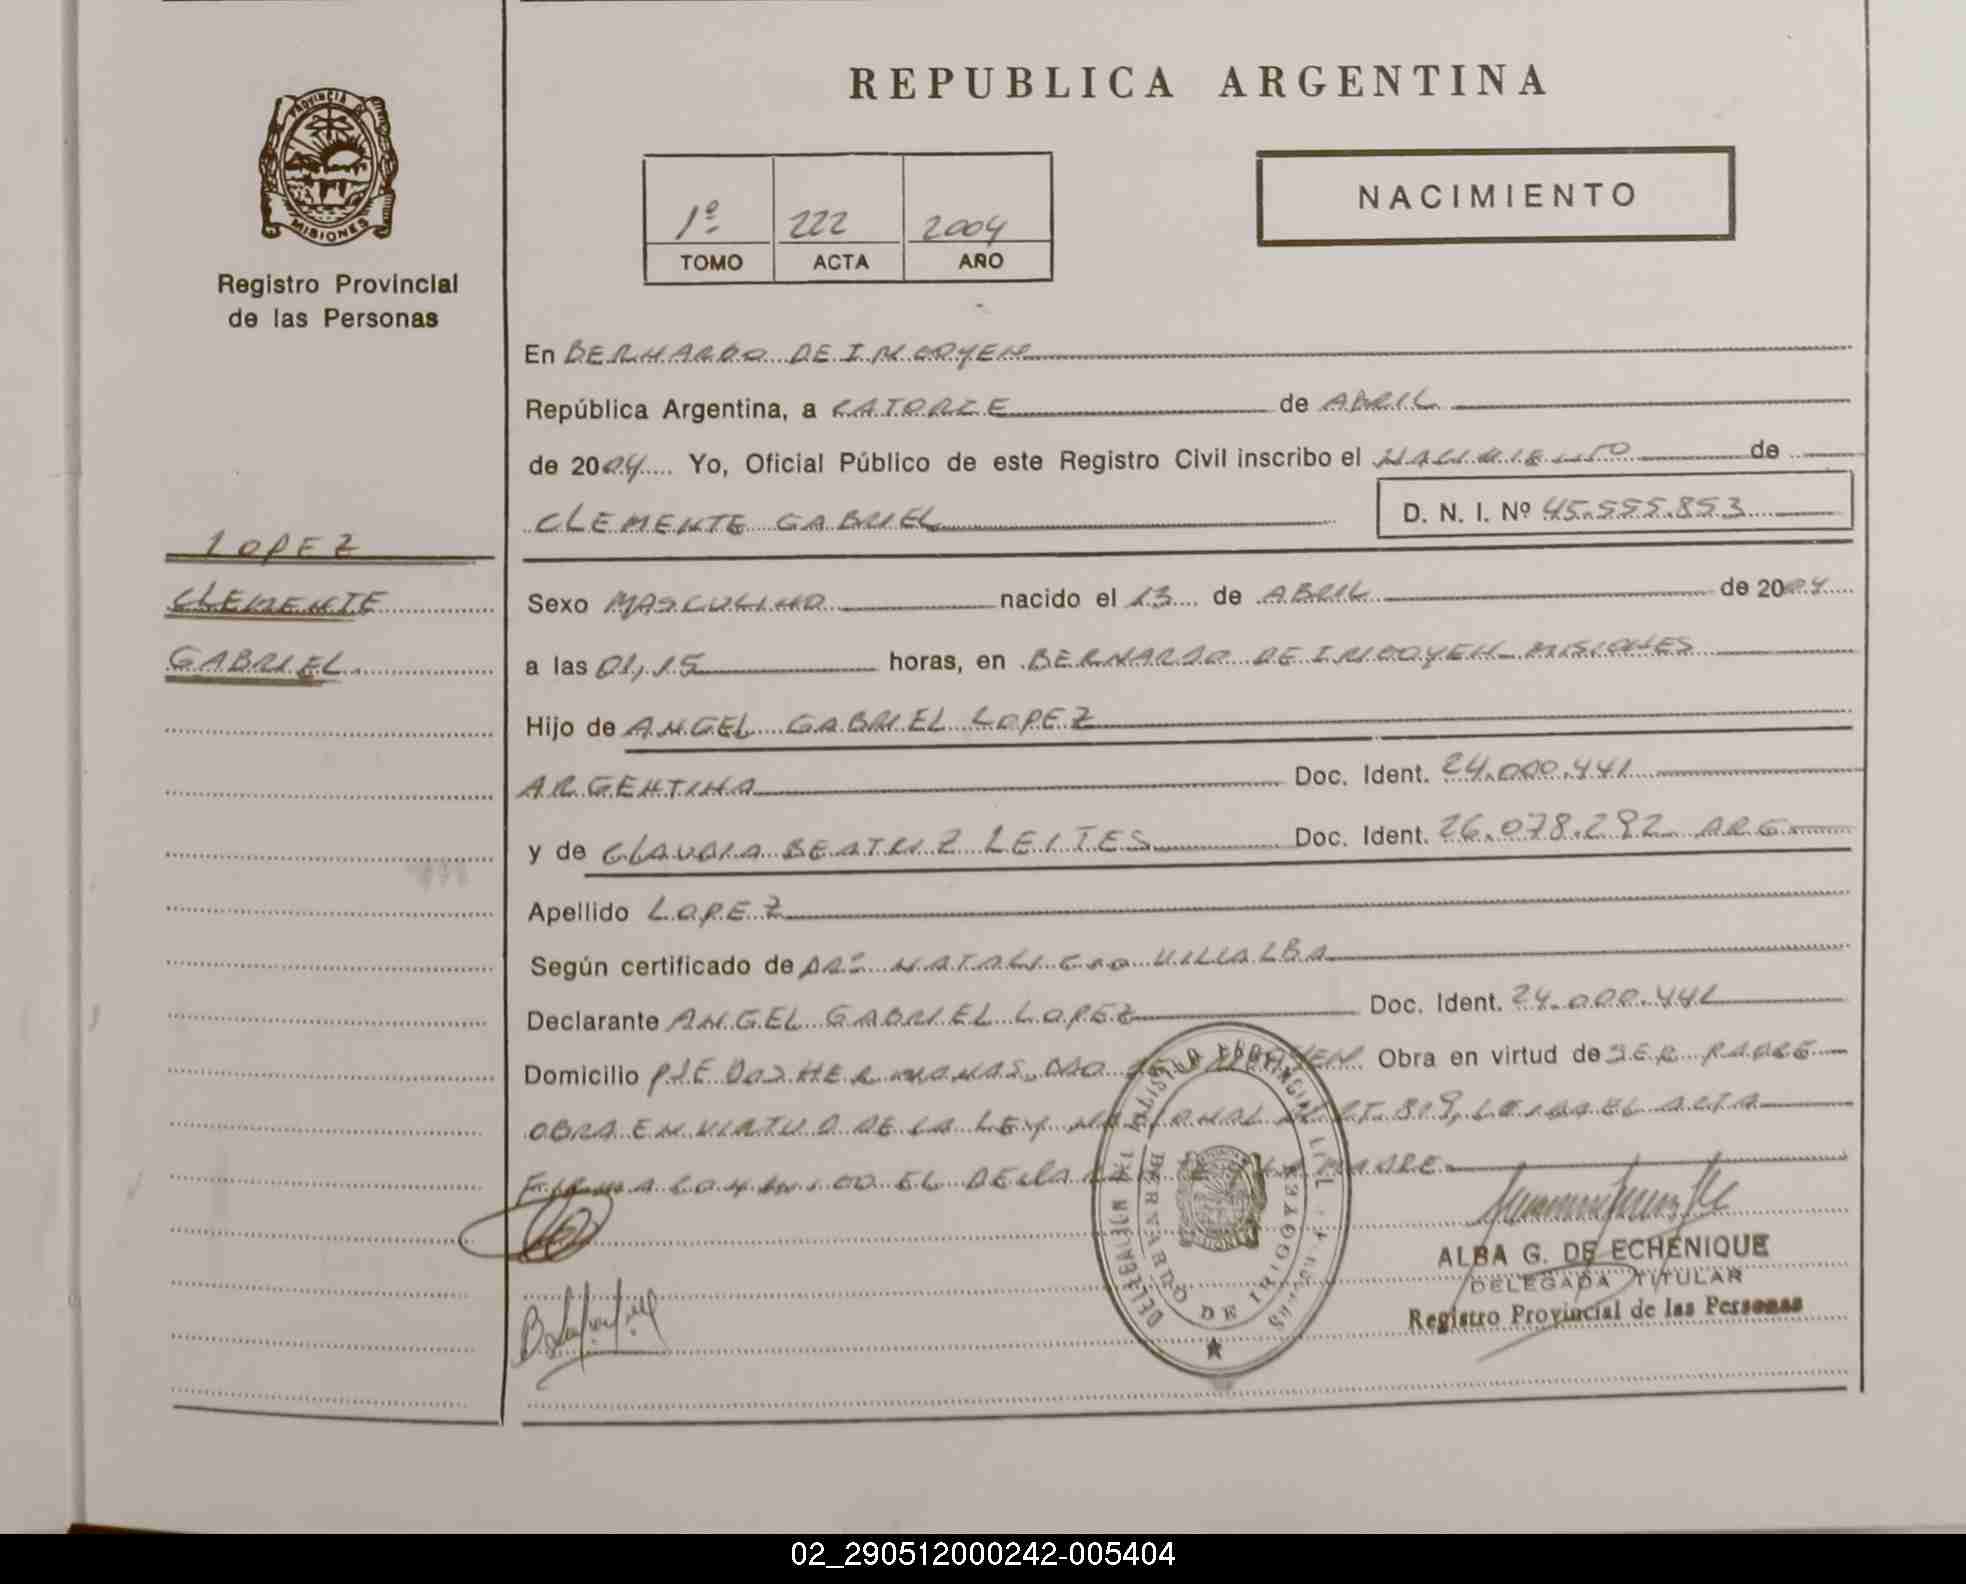 REPUBLICA ARGENTINA
PROVINCIA DE MISIONES
Registro Provincial
de las Personas
1º 222 2004
TOMO ACTA AÑO
NACIMIENTO
En BERNARDO DE IRIGOYEN
República Argentina, a CATORCE de ABRIL
de 2004 Yo, Oficial Público de este Registro Civil inscribo el NACIMIENTO de
CLEMENTE GABRIEL D. N. I. Nº 45.555.853
LOPEZ
CLEMENTE
GABRIEL
Sexo MASCULINO nacido el 13 de ABRIL de 2004
a las 01,15 horas, en BERNARDO DE IRIGOYEN MISIONES
Hijo de ANGEL GABRIEL LOPEZ
ARGENTINA Doc. Ident. 24.000.441
y de CLAUDIA BEATRIZ LEITES Doc. Ident. 26.078.292 ARG
Apellido LOPEZ
Según certificado de DRº NATALICIO VILLALBA
Declarante ANGEL GABRIEL LOPEZ Doc. Ident. 24.000.441
Domicilio PJE DOS HERMANAS, BDO DE IRIGOYEN Obra en virtud de SER PADRE
OBRA EN VIRTUD DE LA LEY NACIONAL LEIDA EL ACTA
FIRMA CONMIGO EL DECLARANTE LA MADRE
REGISTRO PROVINCIAL
DELEGACION
BERNARDO DE IRIGOYEN
ALBA G. DE ECHENIQUE
DELEGADA TITULAR
Registro Provincial de las Personas
02_290512000242-005404